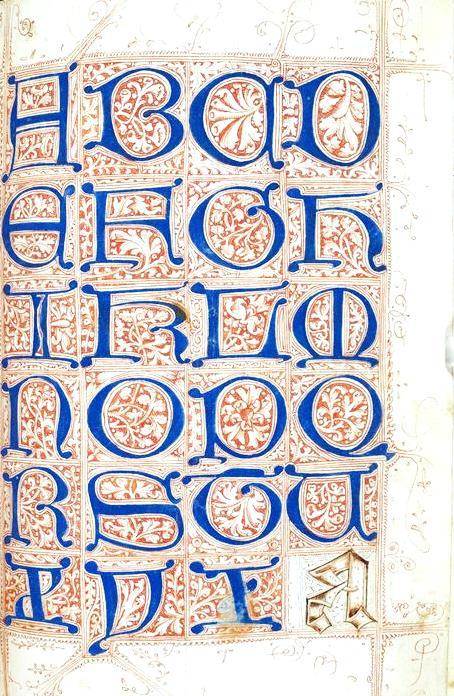 A B C D
E F G H
I K L M
N O P Q
R S T U
X Y Z A